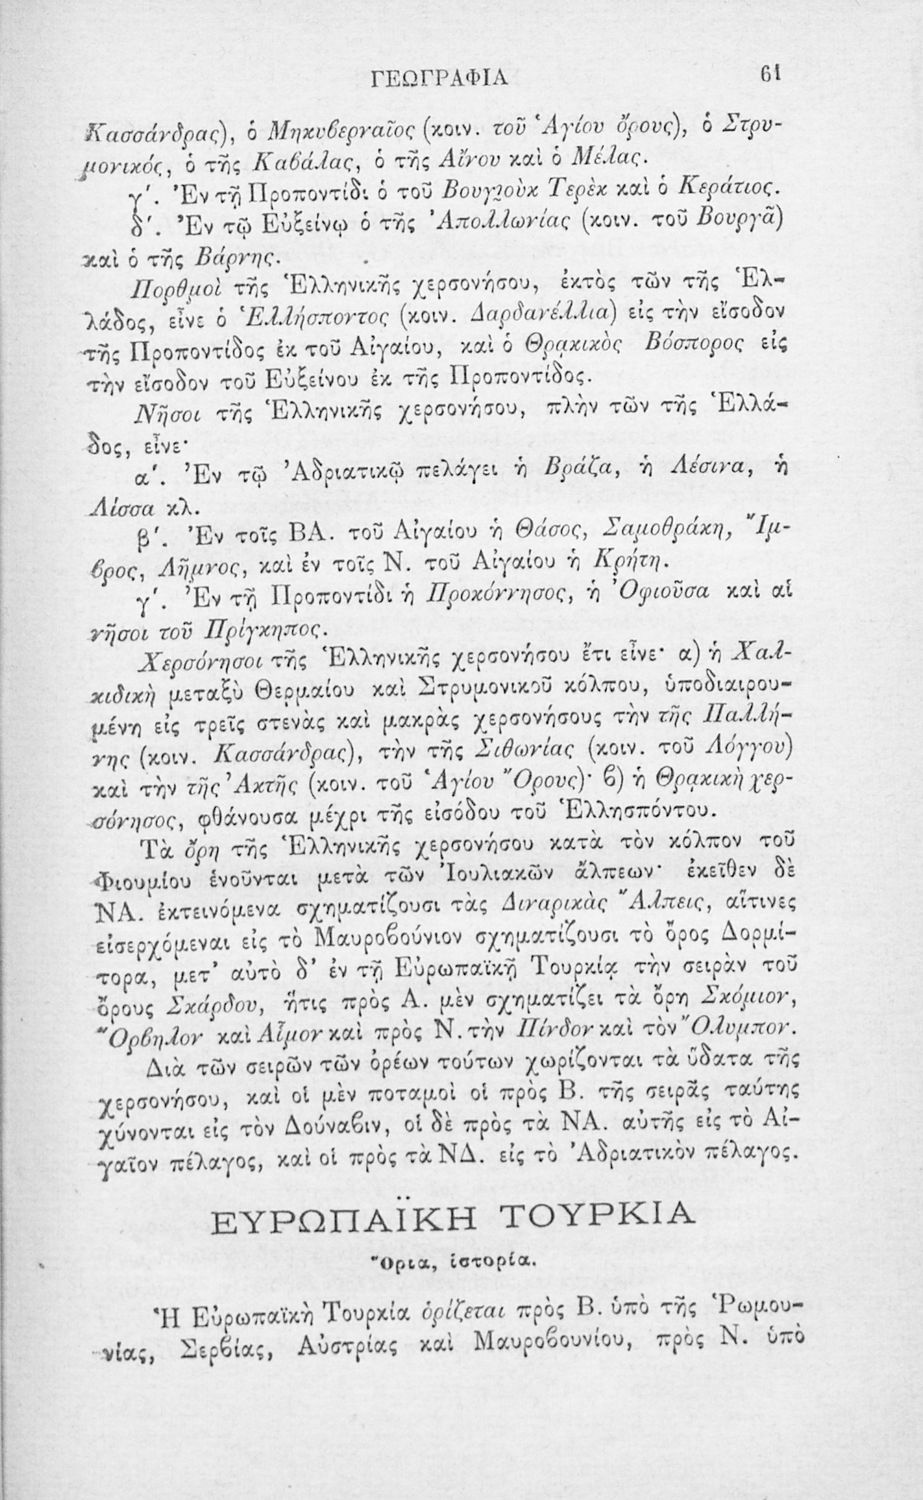 ΓΕΩΓΡΑΦΙΑ 61
Κασσάνδρας), ὁ Μηκυβερναῖος (κοιν. τοῦ Ἁγίου ὄρους), ὁ Στρυ-
μονικός, ὁ τῆς Καβάλας, ὁ τῆς Αἴνου καὶ ὁ Μέλας.
γ΄. Ἐν τῇ Προποντίδι ὁ τοῦ Βουγιοὺκ Τερὲκ καὶ ὁ Κεράτιος.
δ΄. Ἐν τῷ Εὐξείνῳ ὁ τῆς Ἀπολλωνίας (κοιν. τοῦ Βουργᾶ)
καὶ ὁ τῆς Βάρνης.
Πορθμοὶ τῆς Ἑλληνικῆς χερσονήσου, ἐκτὸς τῶν τῆς Ἑλ-
λάδος, εἶνε ὁ Ἑλλήσποντος (κοιν. Δαρδανέλλια) εἰς τὴν εἴσοδον
τῆς Προποντίδος ἐκ τοῦ Αἰγαίου, καὶ ὁ Θρᾳκικὸς Βόσπορος εἰς
τὴν εἴσοδον τοῦ Εὐξείνου ἐκ τῆς Προποντίδος.
Νῆσοι τῆς Ἑλληνικῆς χερσονήσου, πλὴν τῶν τῆς Ἑλλά-
δος, εἶνε·
α΄. Ἐν τῷ Ἀδριατικῷ πελάγει ἡ Βράζα, ἡ Λέσινα, ἡ
Λίσσα κλ.
β΄. Ἐν τοῖς ΒΑ. τοῦ Αἰγαίου ἡ Θάσος, Σαμοθράκη, Ἴμ-
βρος, Λῆμνος, καὶ ἐν τοῖς Ν. τοῦ Αἰγαίου ἡ Κρήτη.
γ΄. Ἐν τῇ Προποντίδι ἡ Προκόννησος, ἡ Ὀφιοῦσα καὶ αἱ
νῆσοι τοῦ Πρίγκηπος.
Χερσόνησοι τῆς Ἑλληνικῆς χερσονήσου ἔτι εἶνε· α) ἡ Χαλ-
κιδικὴ μεταξὺ Θερμαίου καὶ Στρυμονικοῦ κόλπου, ὑποδιαιρου-
μένη εἰς τρεῖς στενὰς καὶ μακρὰς χερσονήσους τὴν τῆς Παλλή-
νης (κοιν. Κασσάνδρας), τὴν τῆς Σιθωνίας (κοιν. τοῦ Λόγγου)
καὶ τὴν τῆς Ἀκτῆς (κοιν. τοῦ Ἁγίου Ὄρους)· β) ἡ Θρᾳκικὴ χερ-
σόνησος, φθάνουσα μέχρι τῆς εἰσόδου τοῦ Ἑλλησπόντου.
Τὰ ὄρη τῆς Ἑλληνικῆς χερσονήσου κατὰ τὸν κόλπον τοῦ
Φιουμίου ἑνοῦνται μετὰ τῶν Ἰουλιακῶν ἄλπεων· ἐκεῖθεν δὲ
ΝΑ. ἐκτεινόμενα σχηματίζουσι τὰς Διναρικὰς Ἄλπεις, αἵτινες
εἰσερχόμεναι εἰς τὸ Μαυροβούνιον σχηματίζουσι τὸ ὄρος Δορμί-
τορα, μετ’ αὐτὸ δ’ ἐν τῇ Εὐρωπαϊκῇ Τουρκίᾳ τὴν σειρὰν τοῦ
ὄρους Σκάρδου, ἥτις πρὸς Α. μὲν σχηματίζει τὰ ὄρη Σκόμιον,
Ὄρβηλον καὶ Αἷμον καὶ πρὸς Ν. τὴν Πίνδον καὶ τὸν Ὄλυμπον.
Διὰ τῶν σειρῶν τῶν ὀρέων τούτων χωρίζονται τὰ ὕδατα τῆς
χερσονήσου, καὶ οἱ μὲν ποταμοὶ οἱ πρὸς Β. τῆς σειρᾶς ταύτης
χύνονται εἰς τὸν Δούναβιν, οἱ δὲ πρὸς τὰ ΝΑ. αὐτῆς εἰς τὸ Αἰ-
γαῖον πέλαγος, καὶ οἱ πρὸς τὰ ΝΔ. εἰς τὸ Ἀδριατικὸν πέλαγος.
ΕΥΡΩΠΑΪΚΗ ΤΟΥΡΚΙΑ
Ὅρια, ἱστορία.
Ἡ Εὐρωπαϊκὴ Τουρκία ὁρίζεται πρὸς Β. ὑπὸ τῆς Ῥωμου-
νίας, Σερβίας, Αὐστρίας καὶ Μαυροβουνίου, πρὸς Ν. ὑπὸ